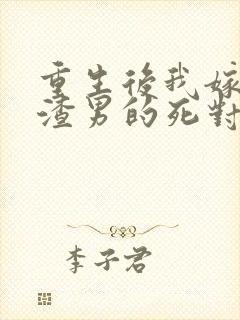 重生後我嫁
渣男的死對
李子君